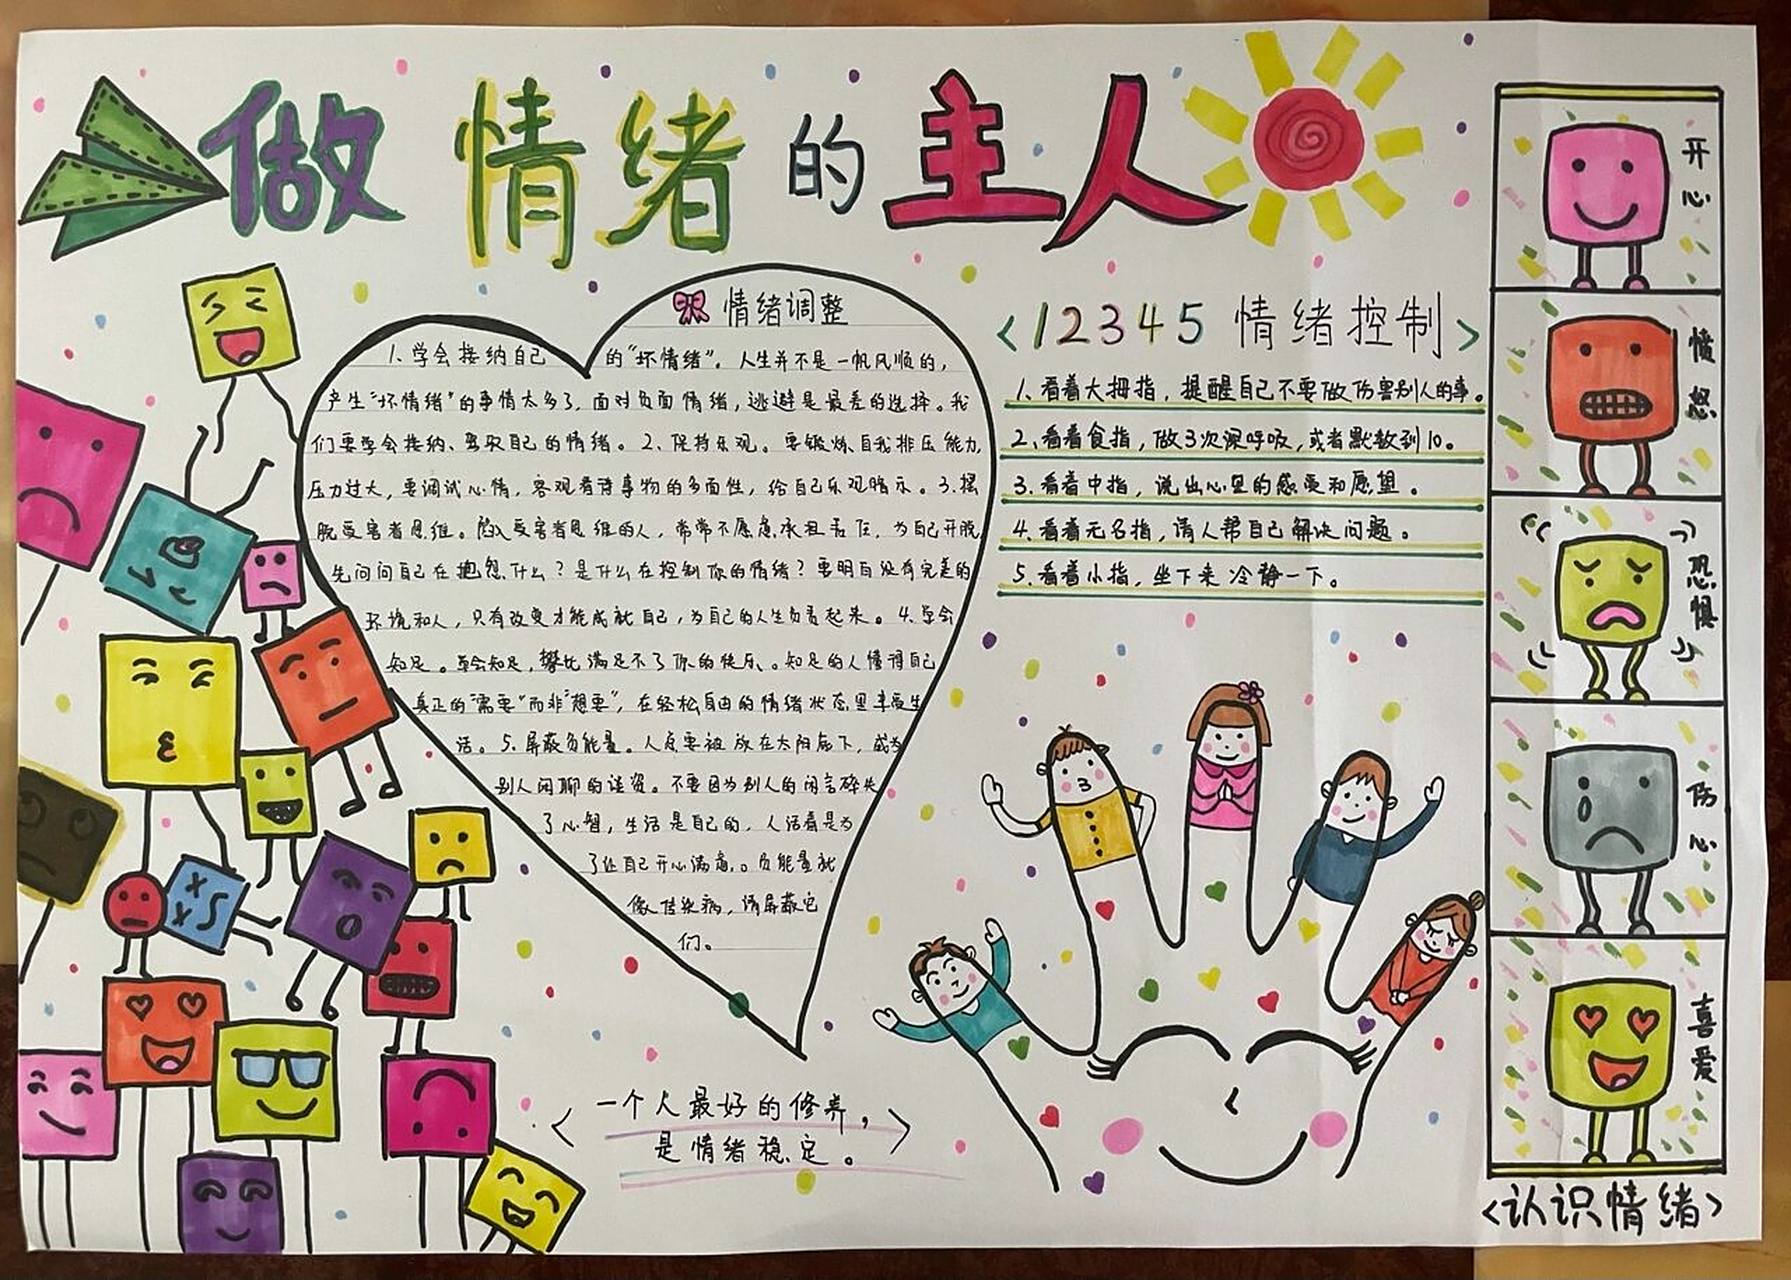 做情绪的主人
情绪调整
1.学会接纳自己的“坏情绪”。人生并不是一帆风顺的，
产生“坏情绪”的事情太多了，面对负面情绪，逃避是最差的选择。我
们要学会接纳、驾驭自己的情绪。2、保持乐观。要锻炼自我排压能力，
压力过大，要调试心情，客观看待事物的多面性，给自己乐观暗示。3.摆
脱受害者思维。陷入受害者思维的人，常常不愿意承担责任，为自己开脱，
先问问自己在抱怨什么？是什么在控制你的情绪？要明白没有完美的
环境和人，只有改变才能成就自己，为自己的人生负责起来。4.学会
知足。学会知足，攀比满足不了你的快乐。知足的人懂得自己
真正的“需要”而非“想要”，在轻松自由的情绪状态里享受生
活。5.屏蔽负能量。人总要被放在太阳底下，成为
别人闲聊的谈资。不要因为别人的闲言碎失
了心智，生活是自己的，人活着是为
了让自己开心满意。负能量就
像传染病，请屏蔽它
们。
一个人最好的修养，
是情绪稳定。
<12345 情绪控制>
1、看着大拇指，提醒自己不要做伤害别人的事。
2、看着食指，做3次深呼吸，或者默数到10。
3.看着中指，说出心里的感受和愿望。
4.看着无名指，请人帮自己解决问题。
5.看着小指，坐下来冷静一下。
开心
愤怒
恐惧
伤心
喜爱
<认识情绪>